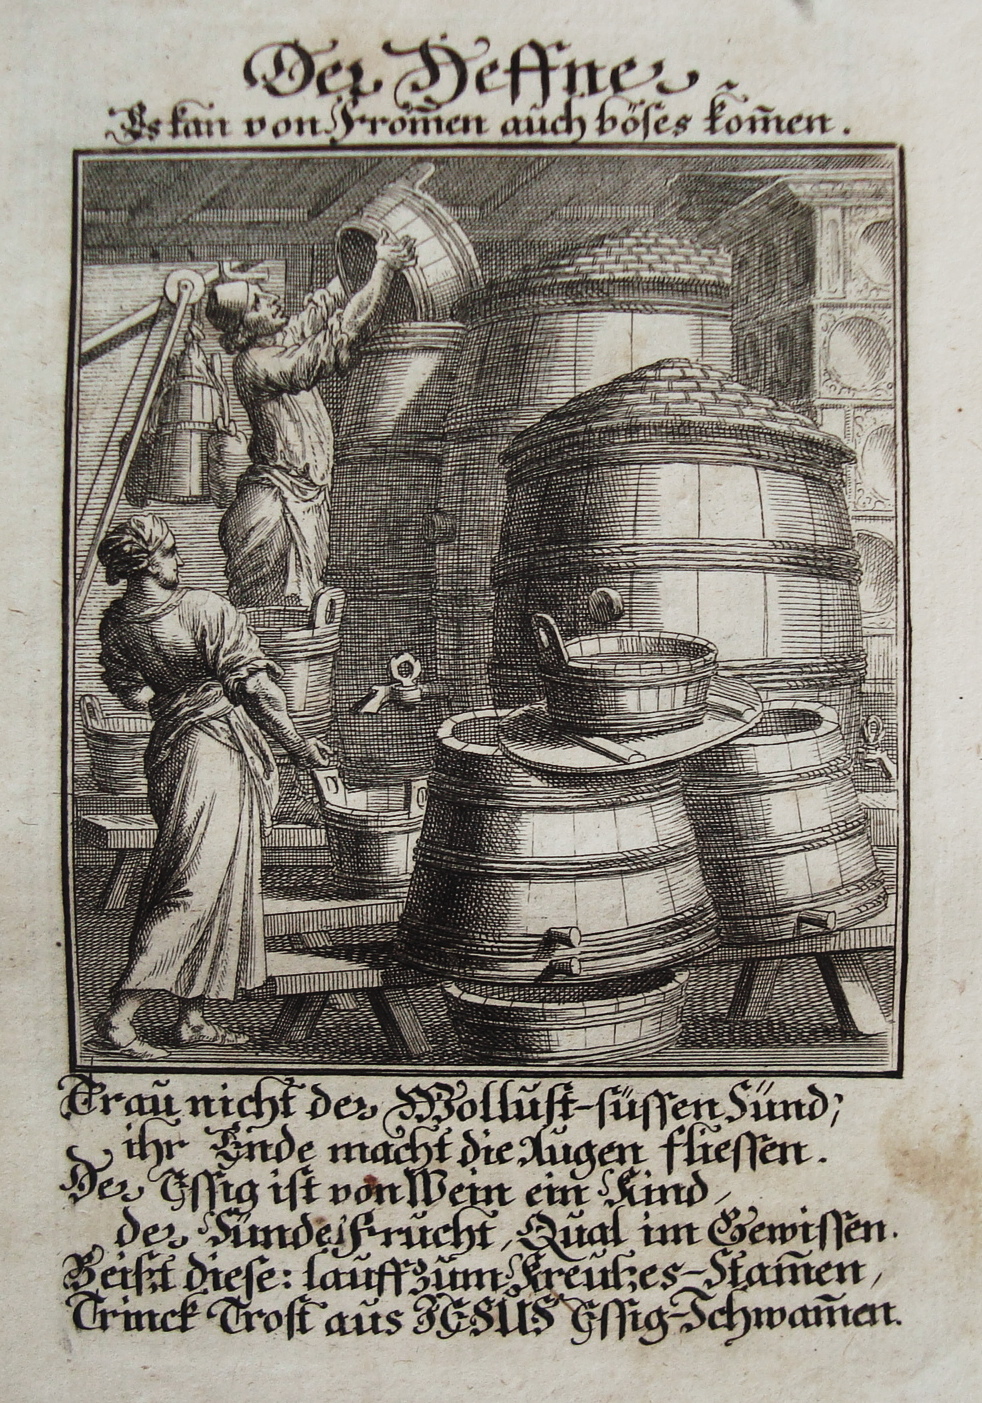 Der Heffner
Es kan von From̄en auch böses kom̄en.
Trau nicht der Wollust-süssen Sünd;
ihr Ende macht die Augen fliessen.
Der Essig ist von Wein ein Kind,
der Sünde Frucht, Qual im Gewissen.
Beist diese: lauff zum Kreutzes-Stam̄en,
Trinck Trost aus JESUS Essig-Schwam̄en.